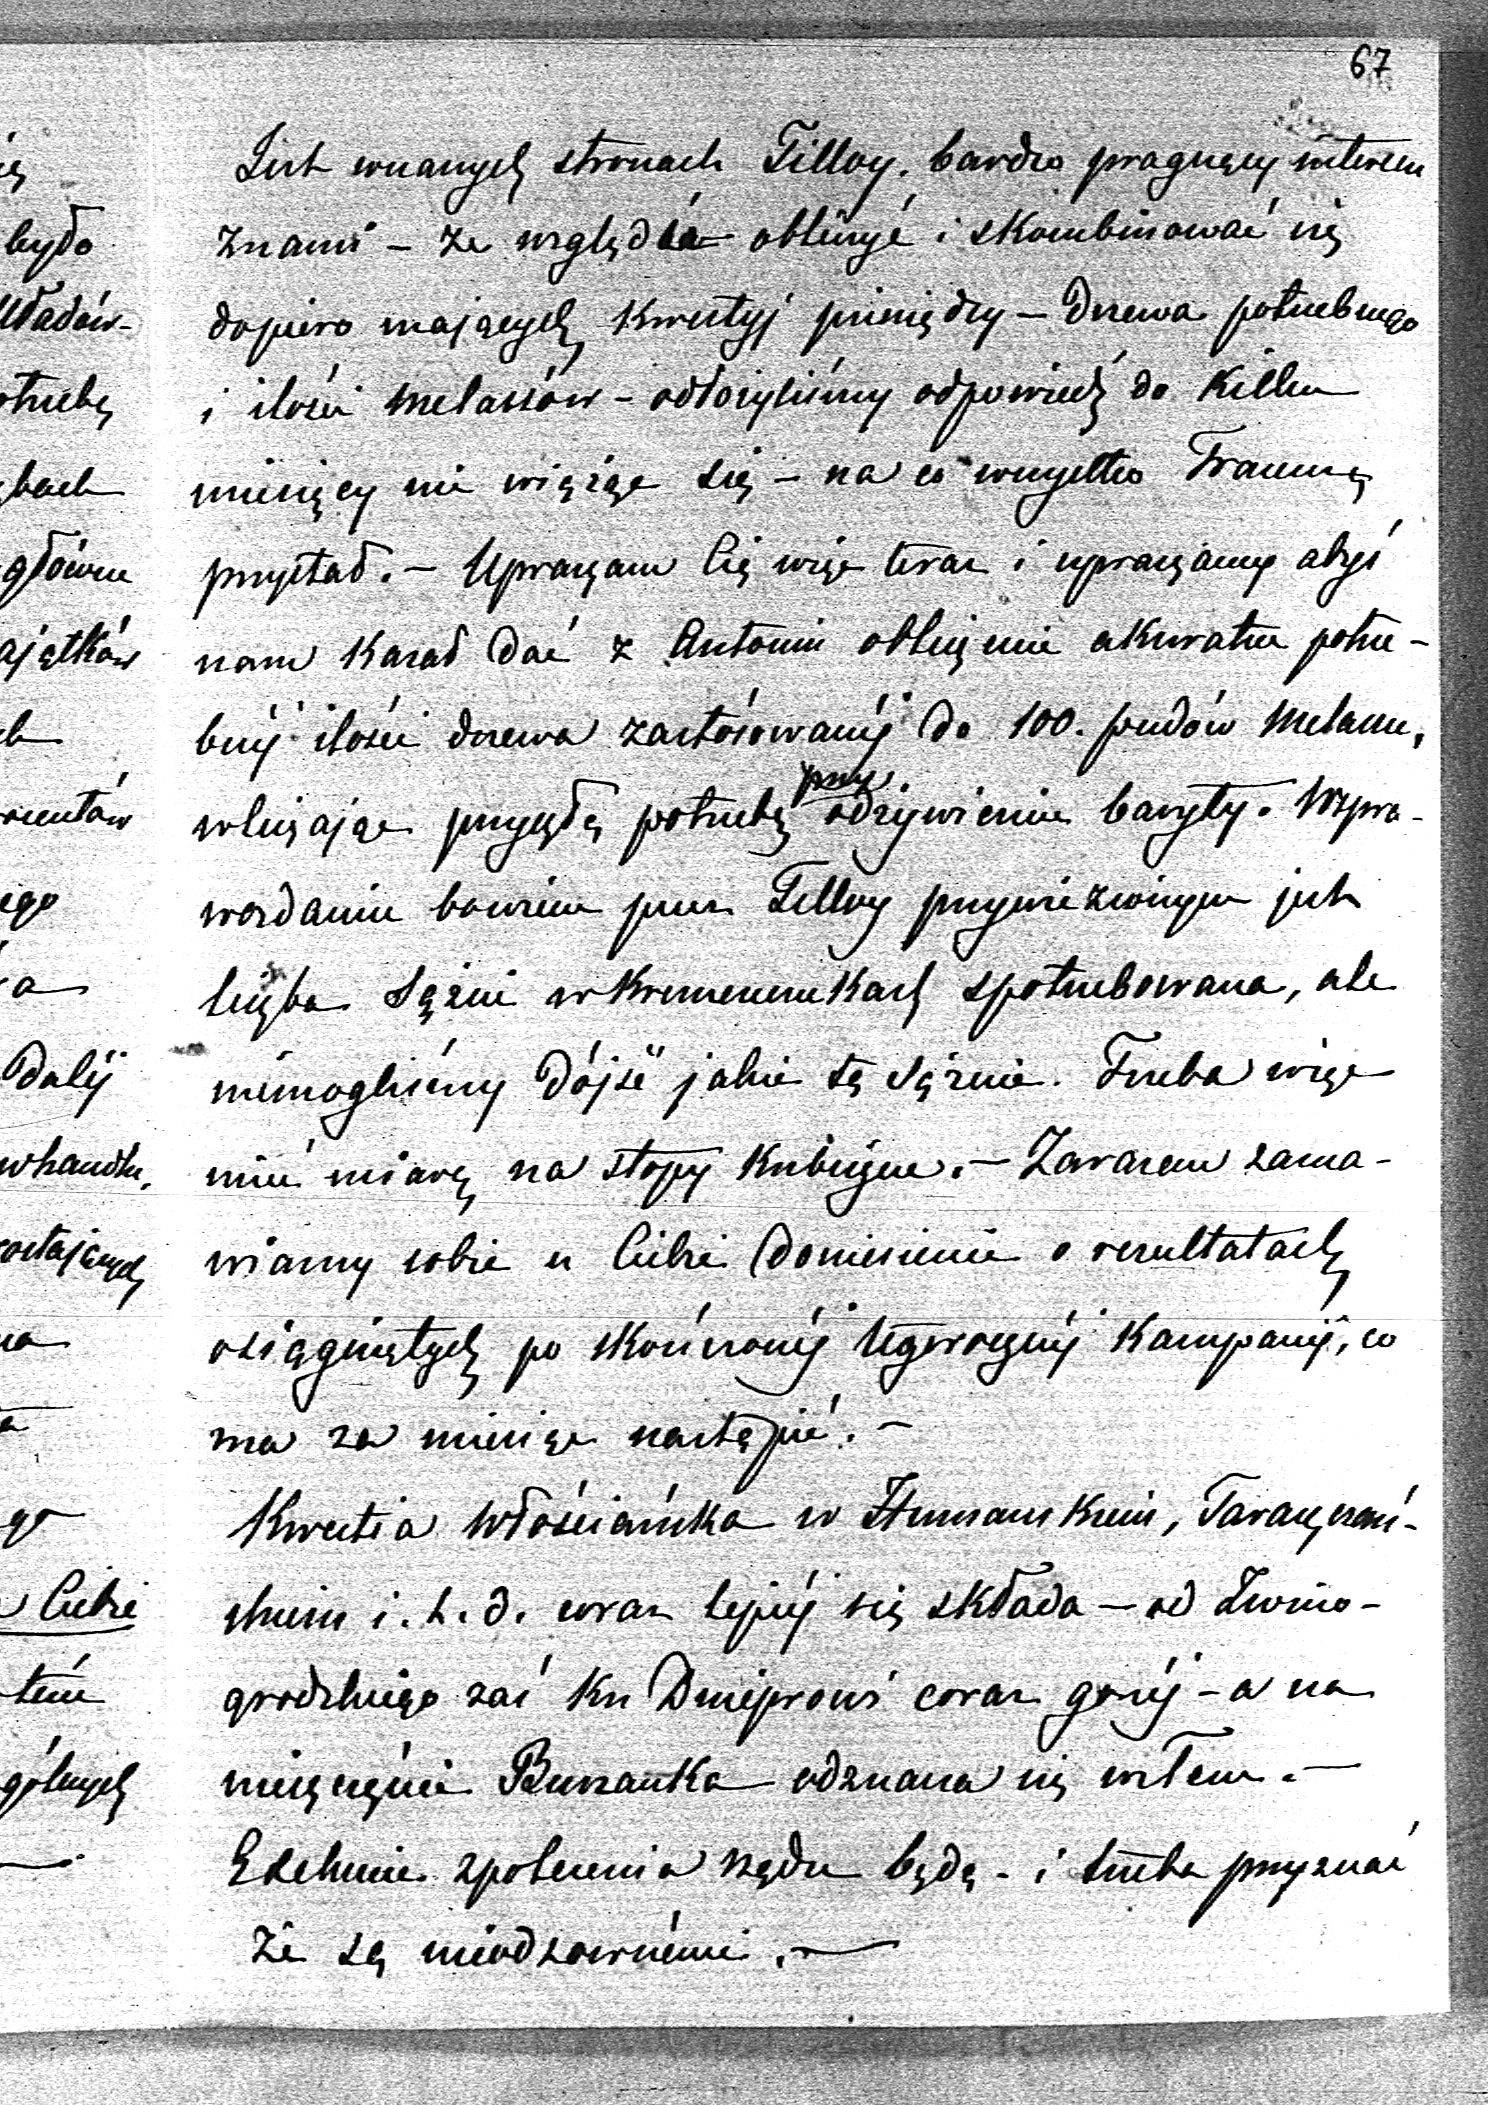 67
Jest wnaszych stronach Tilloy, bardzo pragnący interesu
znami – ze względu obliczyć i skombinować się
dopiero mających kwestyj pieniędzy – Drzewa potrzebnego
i ilości Melassów – odłożyliśmy odpowiedź do Kilku
miesięcy nie wiążąc się – na co wszystko Francuz
przystał. – Upraszam Cię więc teraz i upraszamy abyś
nam Kazał dać z Antonin obliczenie akuratne potrze-
bnéj ilości drzewa zastósowanéj do 100. pudów Melassu,
wliczając przyszłą potrzebę przy odżywieniu baryty. W spra-
wozdaniu bowiem przez Tilloy przywiezionym jest
liczba Sążni w Kremenczukach spotrzebowana, ale
niemogliśmy dójść jakie są sążnie. Trzeba więc
mieć miarę na stopy Kubiczne. – Zarazem zama-
wiamy sobie u Ciebie doniesienie o rezultatach
osiągniętych po skończonéj tegorocznéj Kampanij, co
ma za miesiąc nastąpić. –
Kwestia Włościańska w Humanskim, Taraszczań-
skiem i. t. d. coraz lepiéj się składa – od Zwino-
gródzkiego zaś ku Dnieprowi coraz goréj – a na
nieszczęście Buszanka odznacza się wtem. –
polecenia rządu będą – i trzeba przyznać
że są niodzownémi. –
było
Władów-
otrzebę
główne
ajątków
ego
Daléj
whandlu,
ostających
go
Ciebie
tém
gólnych